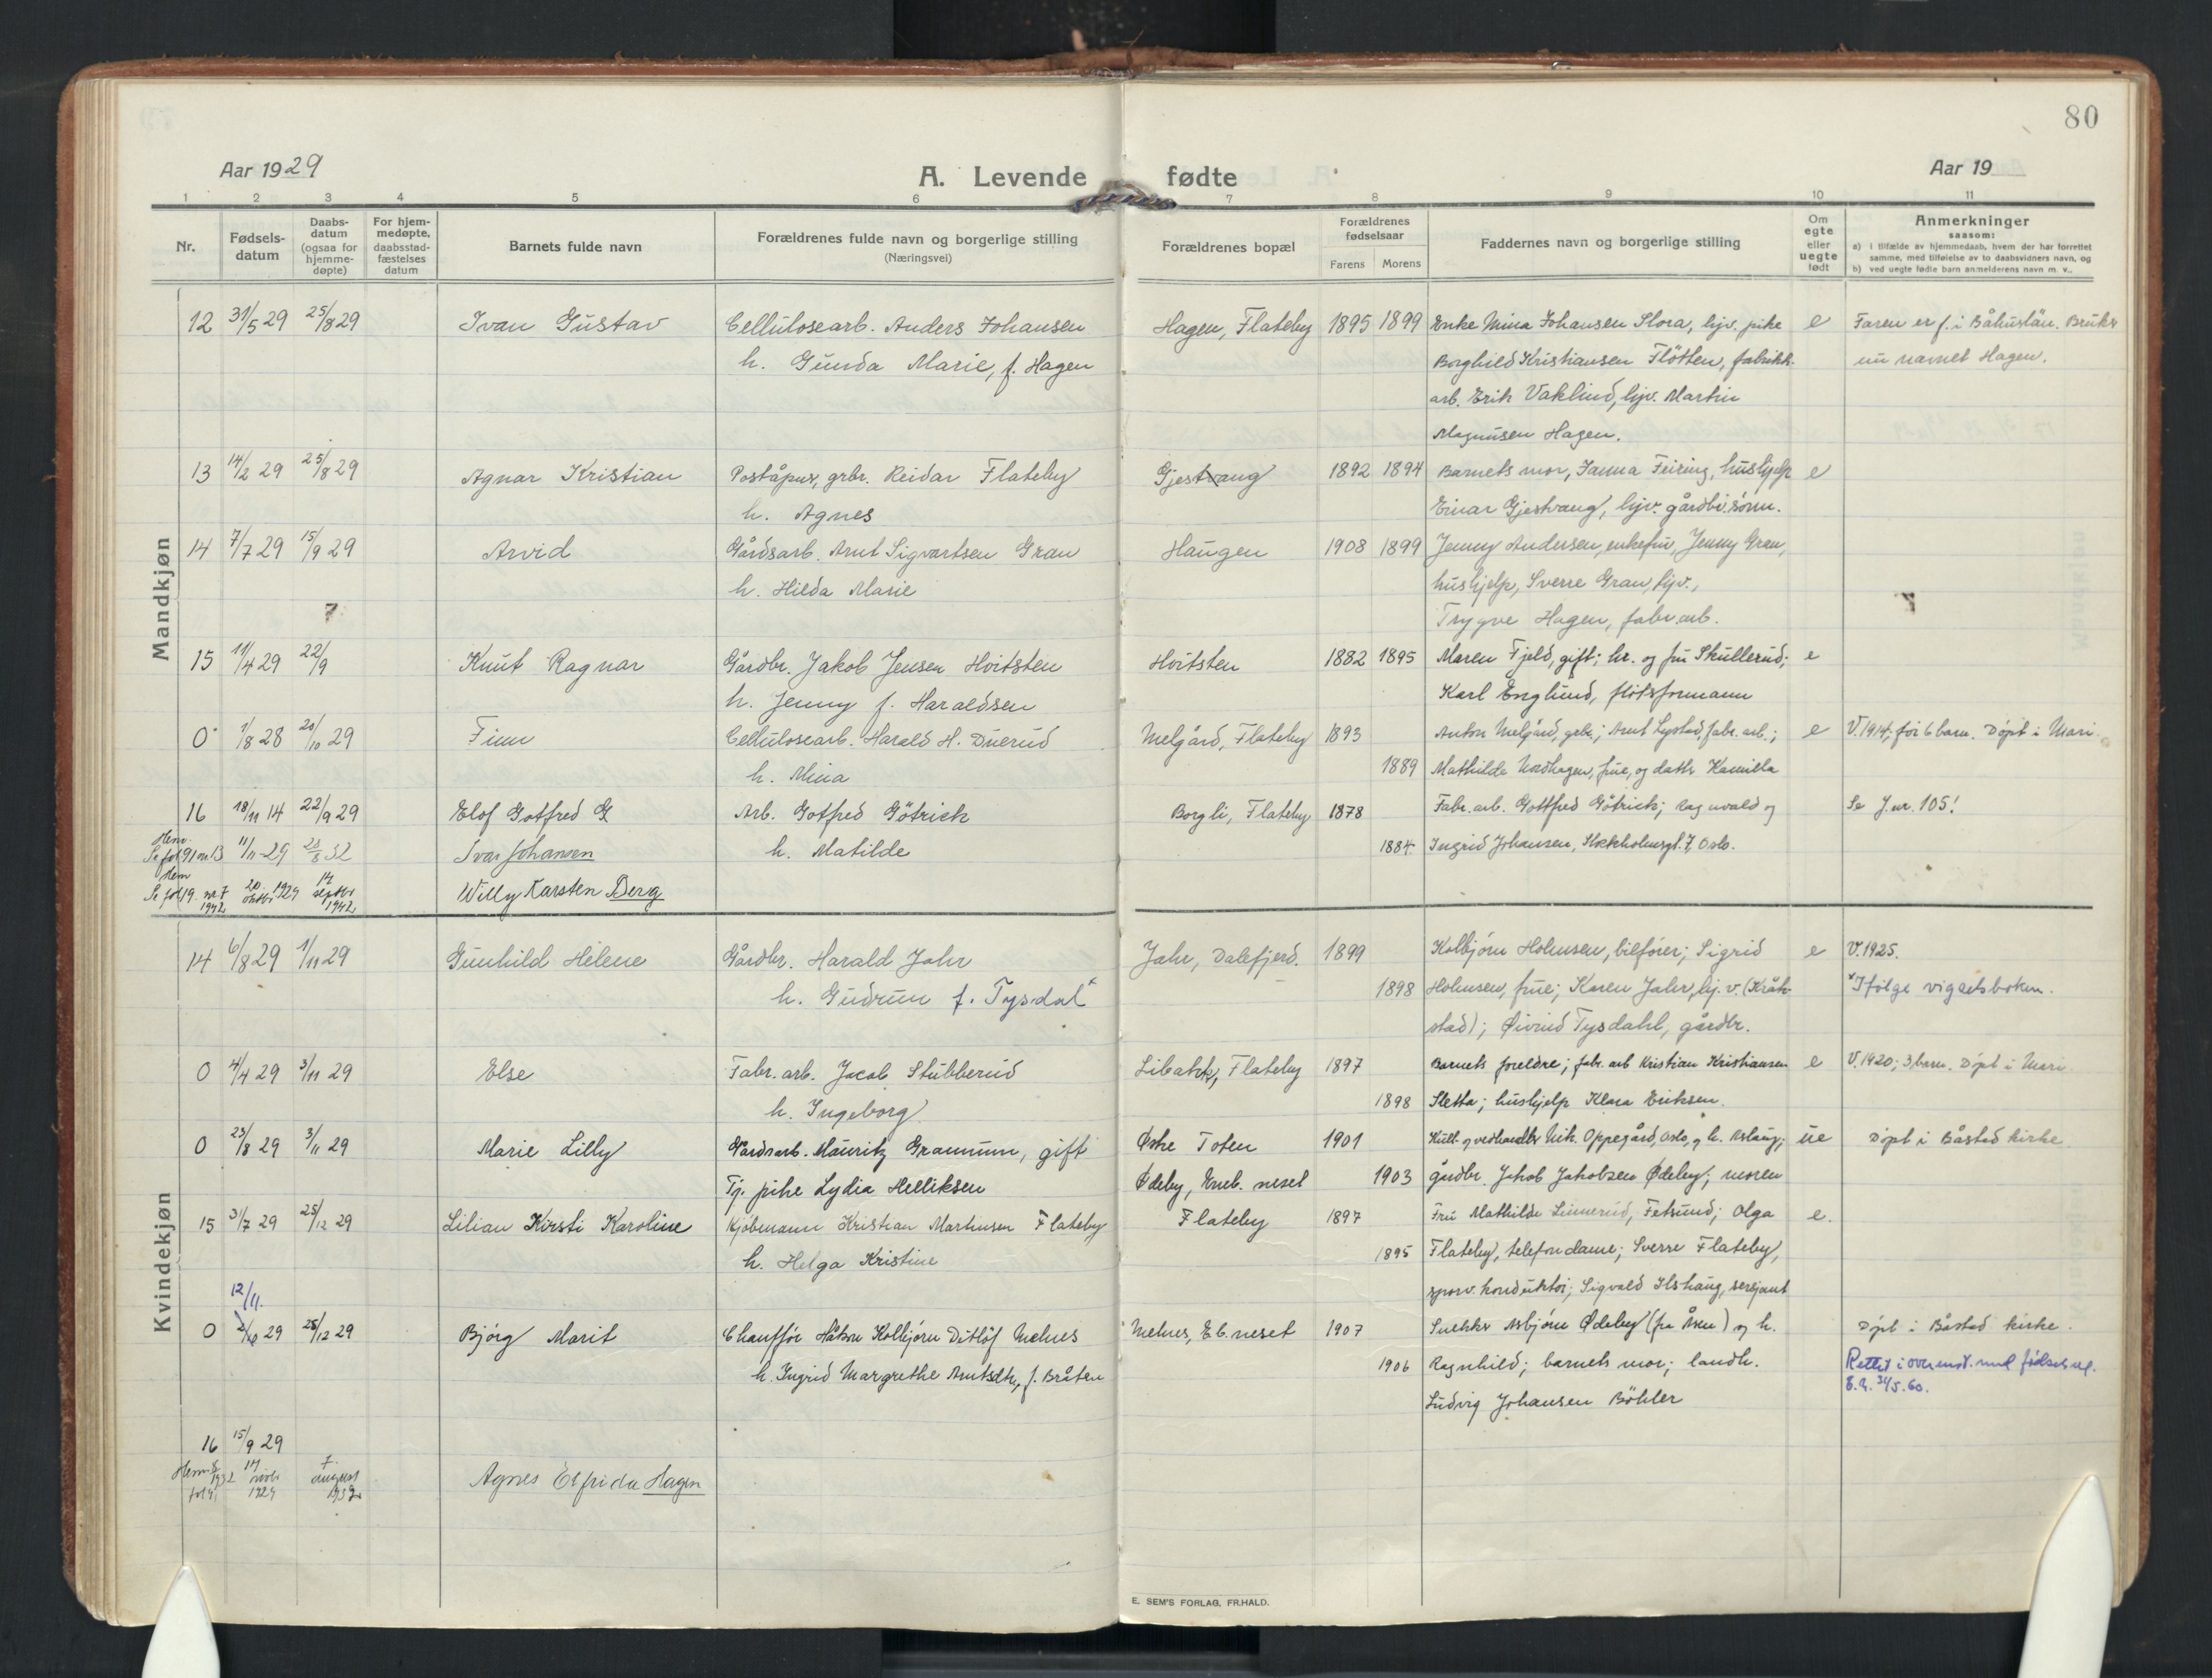 80
Aar 1929
A. Levende fødte
Aar 19
1 2 3 4 5 6 7 8 9 10 11
Nr.
Fødsels-
datum
Daabs-
datum
(ogsaa for
hjemme-
døpte)
For hjem-
medøpte,
daabsstad-
fæstelses
datum
Barnets fulde navn
Forældrenes fulde navn og borgerlige stilling
(Næringsvei)
Forældrenes bopæl
Forældrenes
fødselsaar
Farens Morens
Faddernes navn og borgerlige stilling
Om
egte
eller
uegte
født
Anmerkninger
saasom:
a) i tilfælde av hjemmedaab, hvem der har forrettet
samme, med tilføielse av to daabsvidners navn, og
b) ved uegte fødte barn anmelderens navn m. v..
Mandkjøn
12 31/5 29 25/8 29 Ivan Gustav Cellulosearb. Anders Johansen Hagen, Flateby 1895 1899 Enke Mina Johansen Slora, hjv. pike e Faren er f. i Båhuslän. Bruker
h. Gunda Marie, f. Hagen Borghild Kristiansen Fløtten, fabrikk- nu navnet Hagen.
arb. Erik Vaklind, hjv. Martin
Magnusen Hagen.
13 14/2 29 25/8 29 Agnar Kristian Poståpner, grbr. Reidar Flateby Gjestvang 1892 1894 Barnets mor, Janna Feiring, hushjelp e
h. Agnes Einar Gjestvang, hjv. gårdbr.sønn.
14 7/7 29 15/9 29 Arvid Gårdsarb. Arnt Sigvartsen Gran Haugen 1908 1899 Jenny Andersen, enkefru, Jenny Gran,
h. Hilda Marie hushjelp, Sverre Gran, hjv.,
Trygve Hagen, fabr.arb.
15 11/4 29 22/9 Knut Ragnar Gårdbr. Jakob Jensen Hvitsten Hvitsten 1882 1895 Maren Fjeld, gift; hr. og fru Skullerud; e
h. Jenny f. Haraldsen Karl Englund, fløtsformann
0 1/8 28 20/10 29 Finn Cellulosearb. Harald H. Duerud Melgård, Flateby 1893 Anton Melgård, grbr.; Arnt Lystad, fabr. arb.; e V. 1914; før 6 barn. Døpt i Mari.
h. Mina 1889 Mathilde Nordhagen, frue, og datter Kamilla
16 18/11 14 22/9 29 Elof Gotfred G Arb. Gotfred Götrick Borgli, Flateby 1878 Fabr. arb. Gottfred Götrick; Ragnvald og Se J.nr. 105!
h. Matilde 1884 Ingrid Johansen, Stockholmsgt. 7, Oslo.
Henv.
Se fol 91 nr 13 11/11-29 28/8 32 Ivar Johansen
Hem
Se fol 19. nr 7 1942 20 oktbr 1929 14 septbr 1942 Willy Karsten Berg
Kvindekjøn
14 6/8 29 1/11 29 Gunhild Helene Gårdbr. Harald Jahr Jahr, Dalefjerd. 1899 Kolbjørn Holmsen, bilfører; Sigrid e V. 1925.
h. Gudrun f. Tysdal x 1898 Holmsen, frue; Karen Jahr, hj.v. (Kråk- x Ifølge vigselsboken.
stad); Øivind Tysdahl, gårdbr.
0 4/4 29 3/11 29 Else Fabr. arb. Jacob Stubberud Libakk, Flateby 1897 Barnets foreldre; fabr. arb Kristian Kristiansen e V. 1920; 3 barn. Døpt i Mari.
h. Ingeborg 1898 Sletta; hushjelp Klara Eriksen.
0 23/8 29 3/11 29 Marie Lilly Gårdsarb. Mauritz Gramum, gift Østre Toten 1901 Kull- og vedhandler Nik. Oppegård, Oslo, og h. Aslaug; ue Døpt i Båstad kirke.
Tj. pike Lydia Helliksen Ødeby, Eneb. neset 1903 gårdbr. Jakob Jakobsen Ødeby; moren
15 31/7 29 25/12 29 Lilian Kirsti Karoline Kjøbmann Kristian Martinsen Flateby Flateby 1897 Fru Mathilde Linnerud, Fetsund; Olga e.
h. Helga Kristine 1895 Flateby, telefondame; Sverre Flateby,
sporv. konduktør; Sigvald Ilshaug, sersjant
12/11.
0 2/10 29 25/12 29 Bjørg Marit Chauffør Håkon Kolbjørn Ditlöf Melnes Melnes, Eb. neset 1907 Snekker Asbjørn Ødeby (fra Åsen) og h. Døpt i Båstad kirke.
h. Ingrid Margrethe Arntsdtr., f. Bråten 1906 Ragnhild; barnets mor; landh. Rettet i overenst. med fødselsmel.
Ludvig Johansen Böhler E.G. 31/5.60.
16 15/9 29
14 novbr 1929 7. august 1932 Agnes Elfrida Hagen
E. SEM'S FORLAG, FR.HALD.